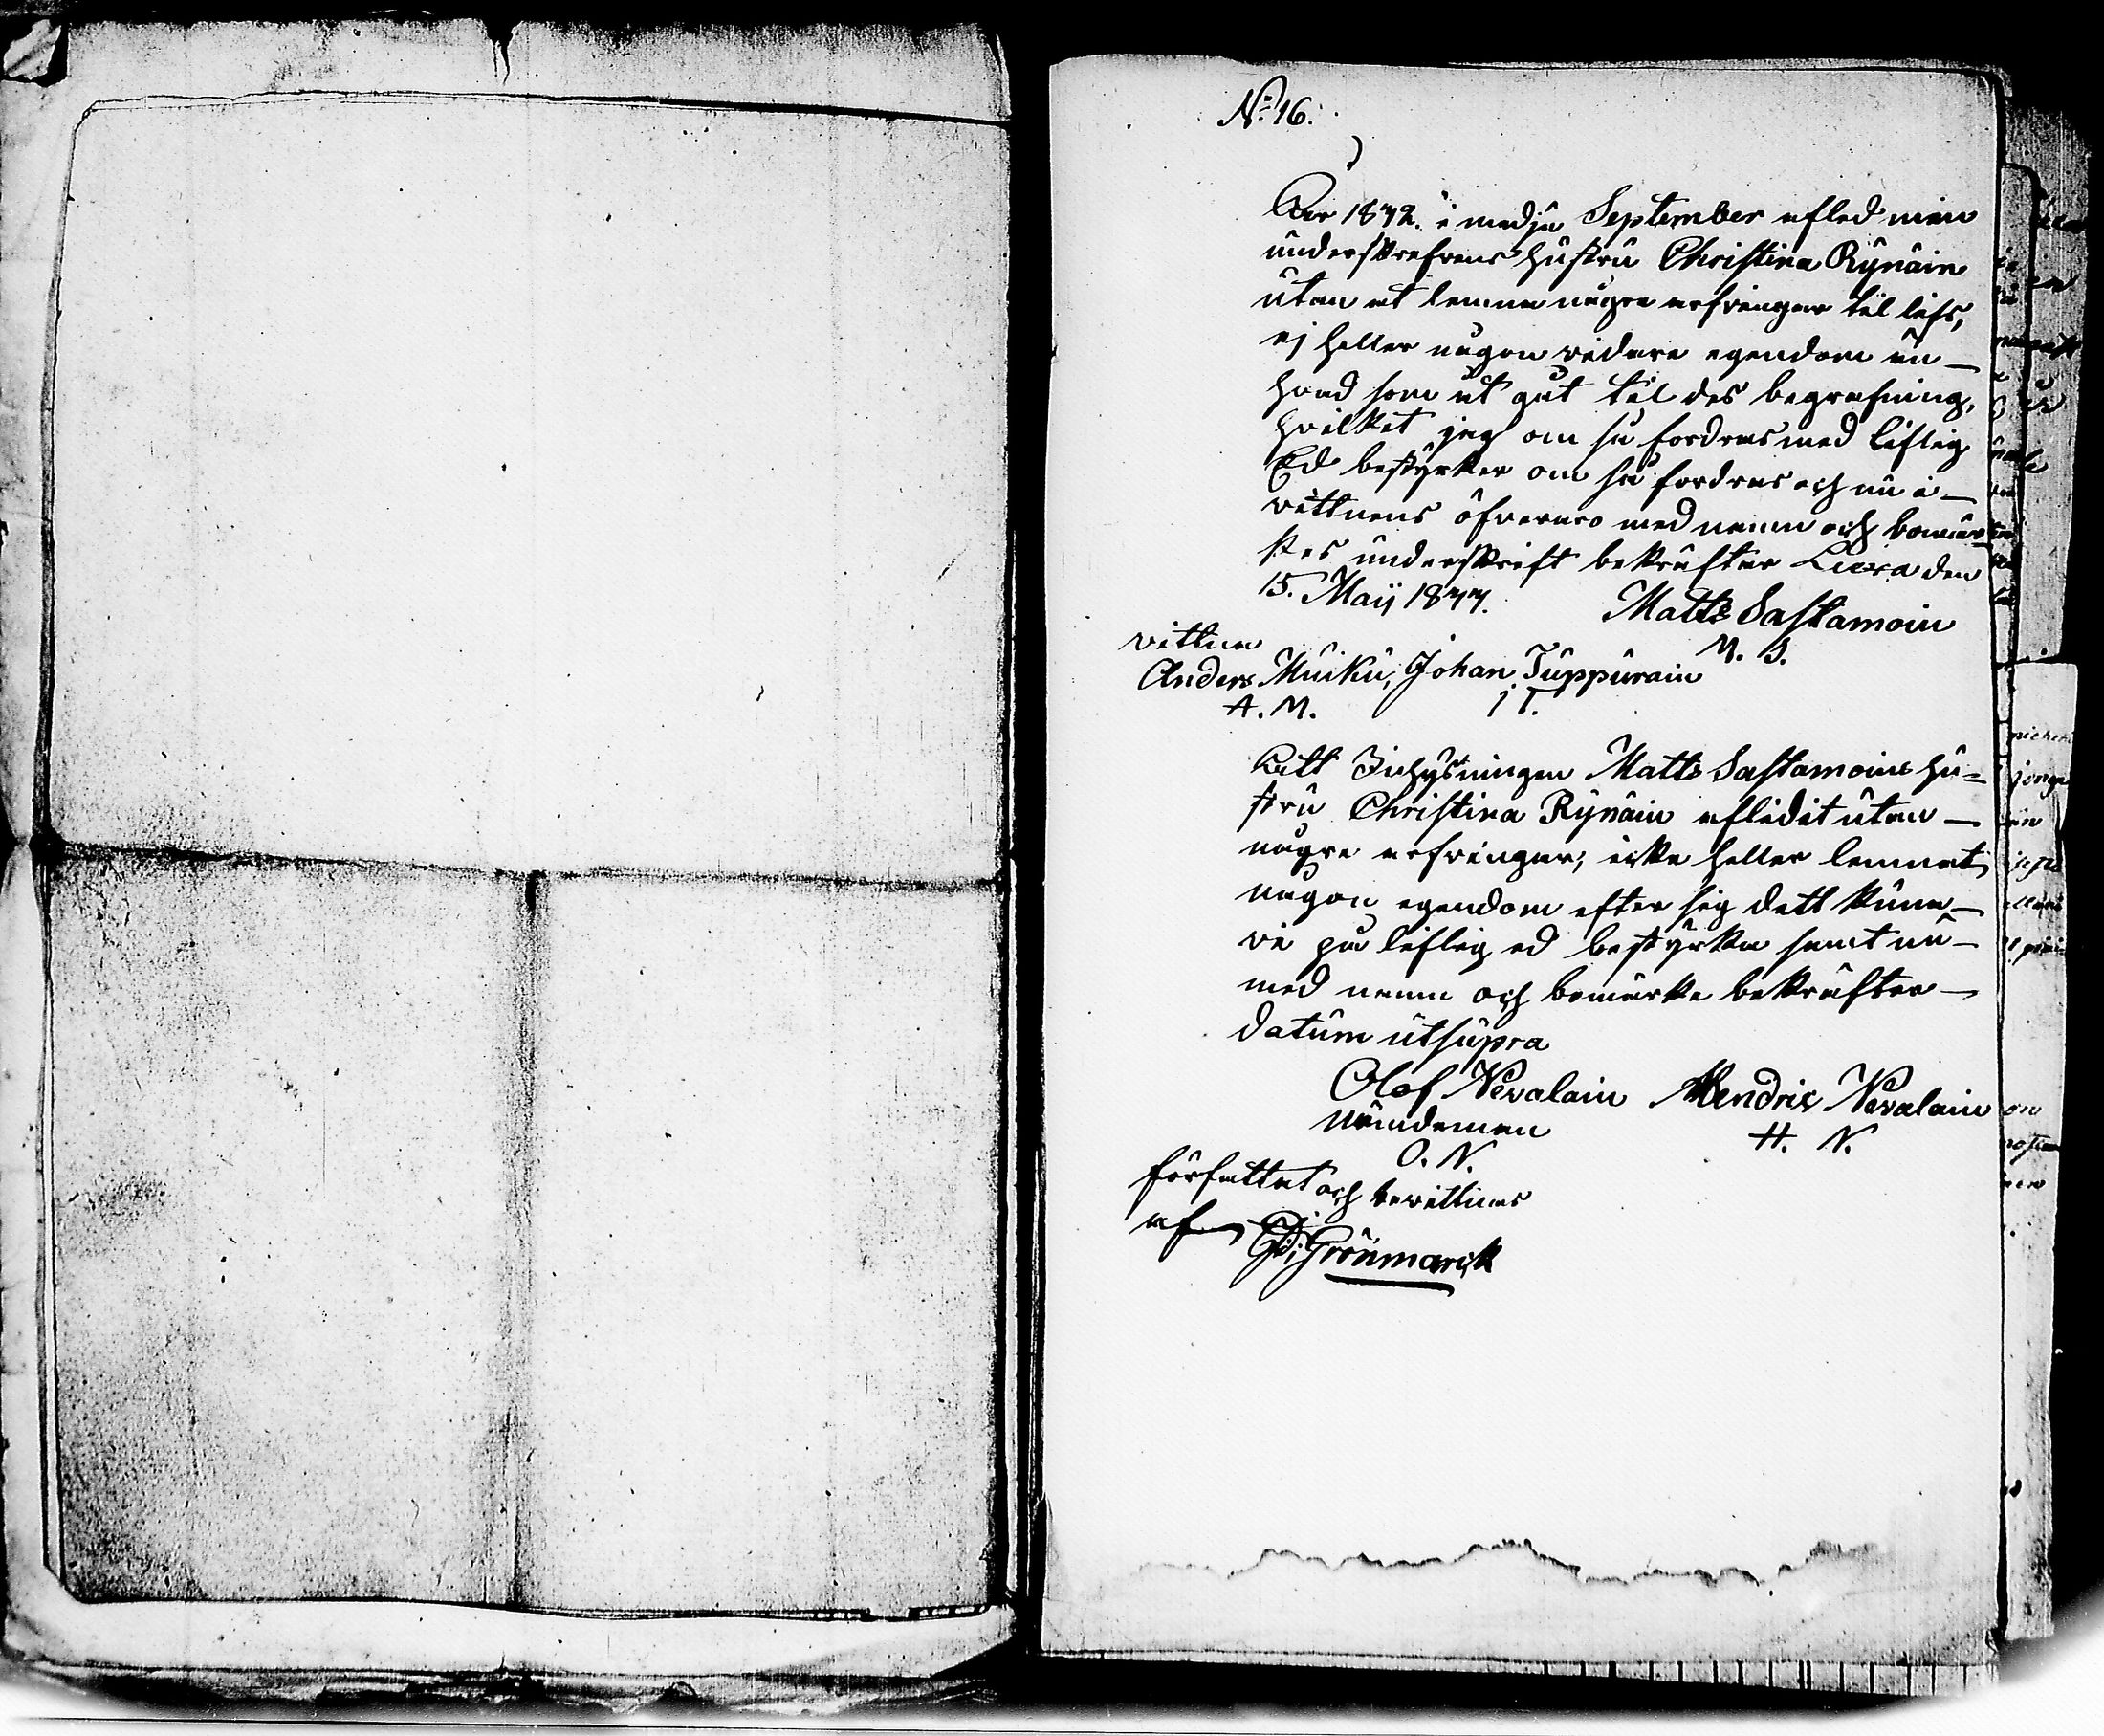 No: 16.
Åår 1872. i medju September afled min
underskrefvens hustru Christina Rÿnäin
utan at lemna några arfvingar til lifs,
ej heller någon vidare egendom än
hvad som åt gåt til des begrafning,
hvilket jag om så fordras med liflig
Ed bestÿrker om så fordras och nu i
vittnens öfvervaro med namn och bomär-
kes underskrift bekräftar Liexa den
15. Maÿ 1877. Matts Sastamoin
M. S.
vittna
Anders Muikü, Johan Tuppurain
A. M. J T.
Att Inhÿsningen Matts Sastamoins hu=
stru Christina Rÿnäin aflidit utan
några arfvingar; icke heller lemnat
någon egendom efter sig dett kunna
vi på liflig ed bestÿrka samt nu
med namn och bomärke bekräftar
datum utsupra
Olof Nevalain Hendric Nevalain
Nämdeman H. N.
O. N.
författat och bevittnas
af Grönmarck